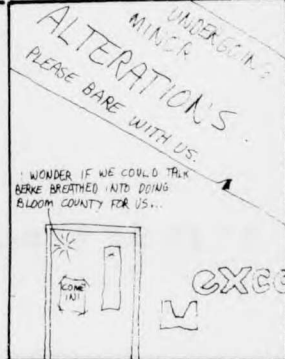 UNDERGOING
MINOR
ALTERATIONS.
PLEASE BARE WITH US.
I WONDER IF WE COULD TALK
BERKE BREATHED INTO DOING
BLOOM COUNTY FOR US...
COME
IN!